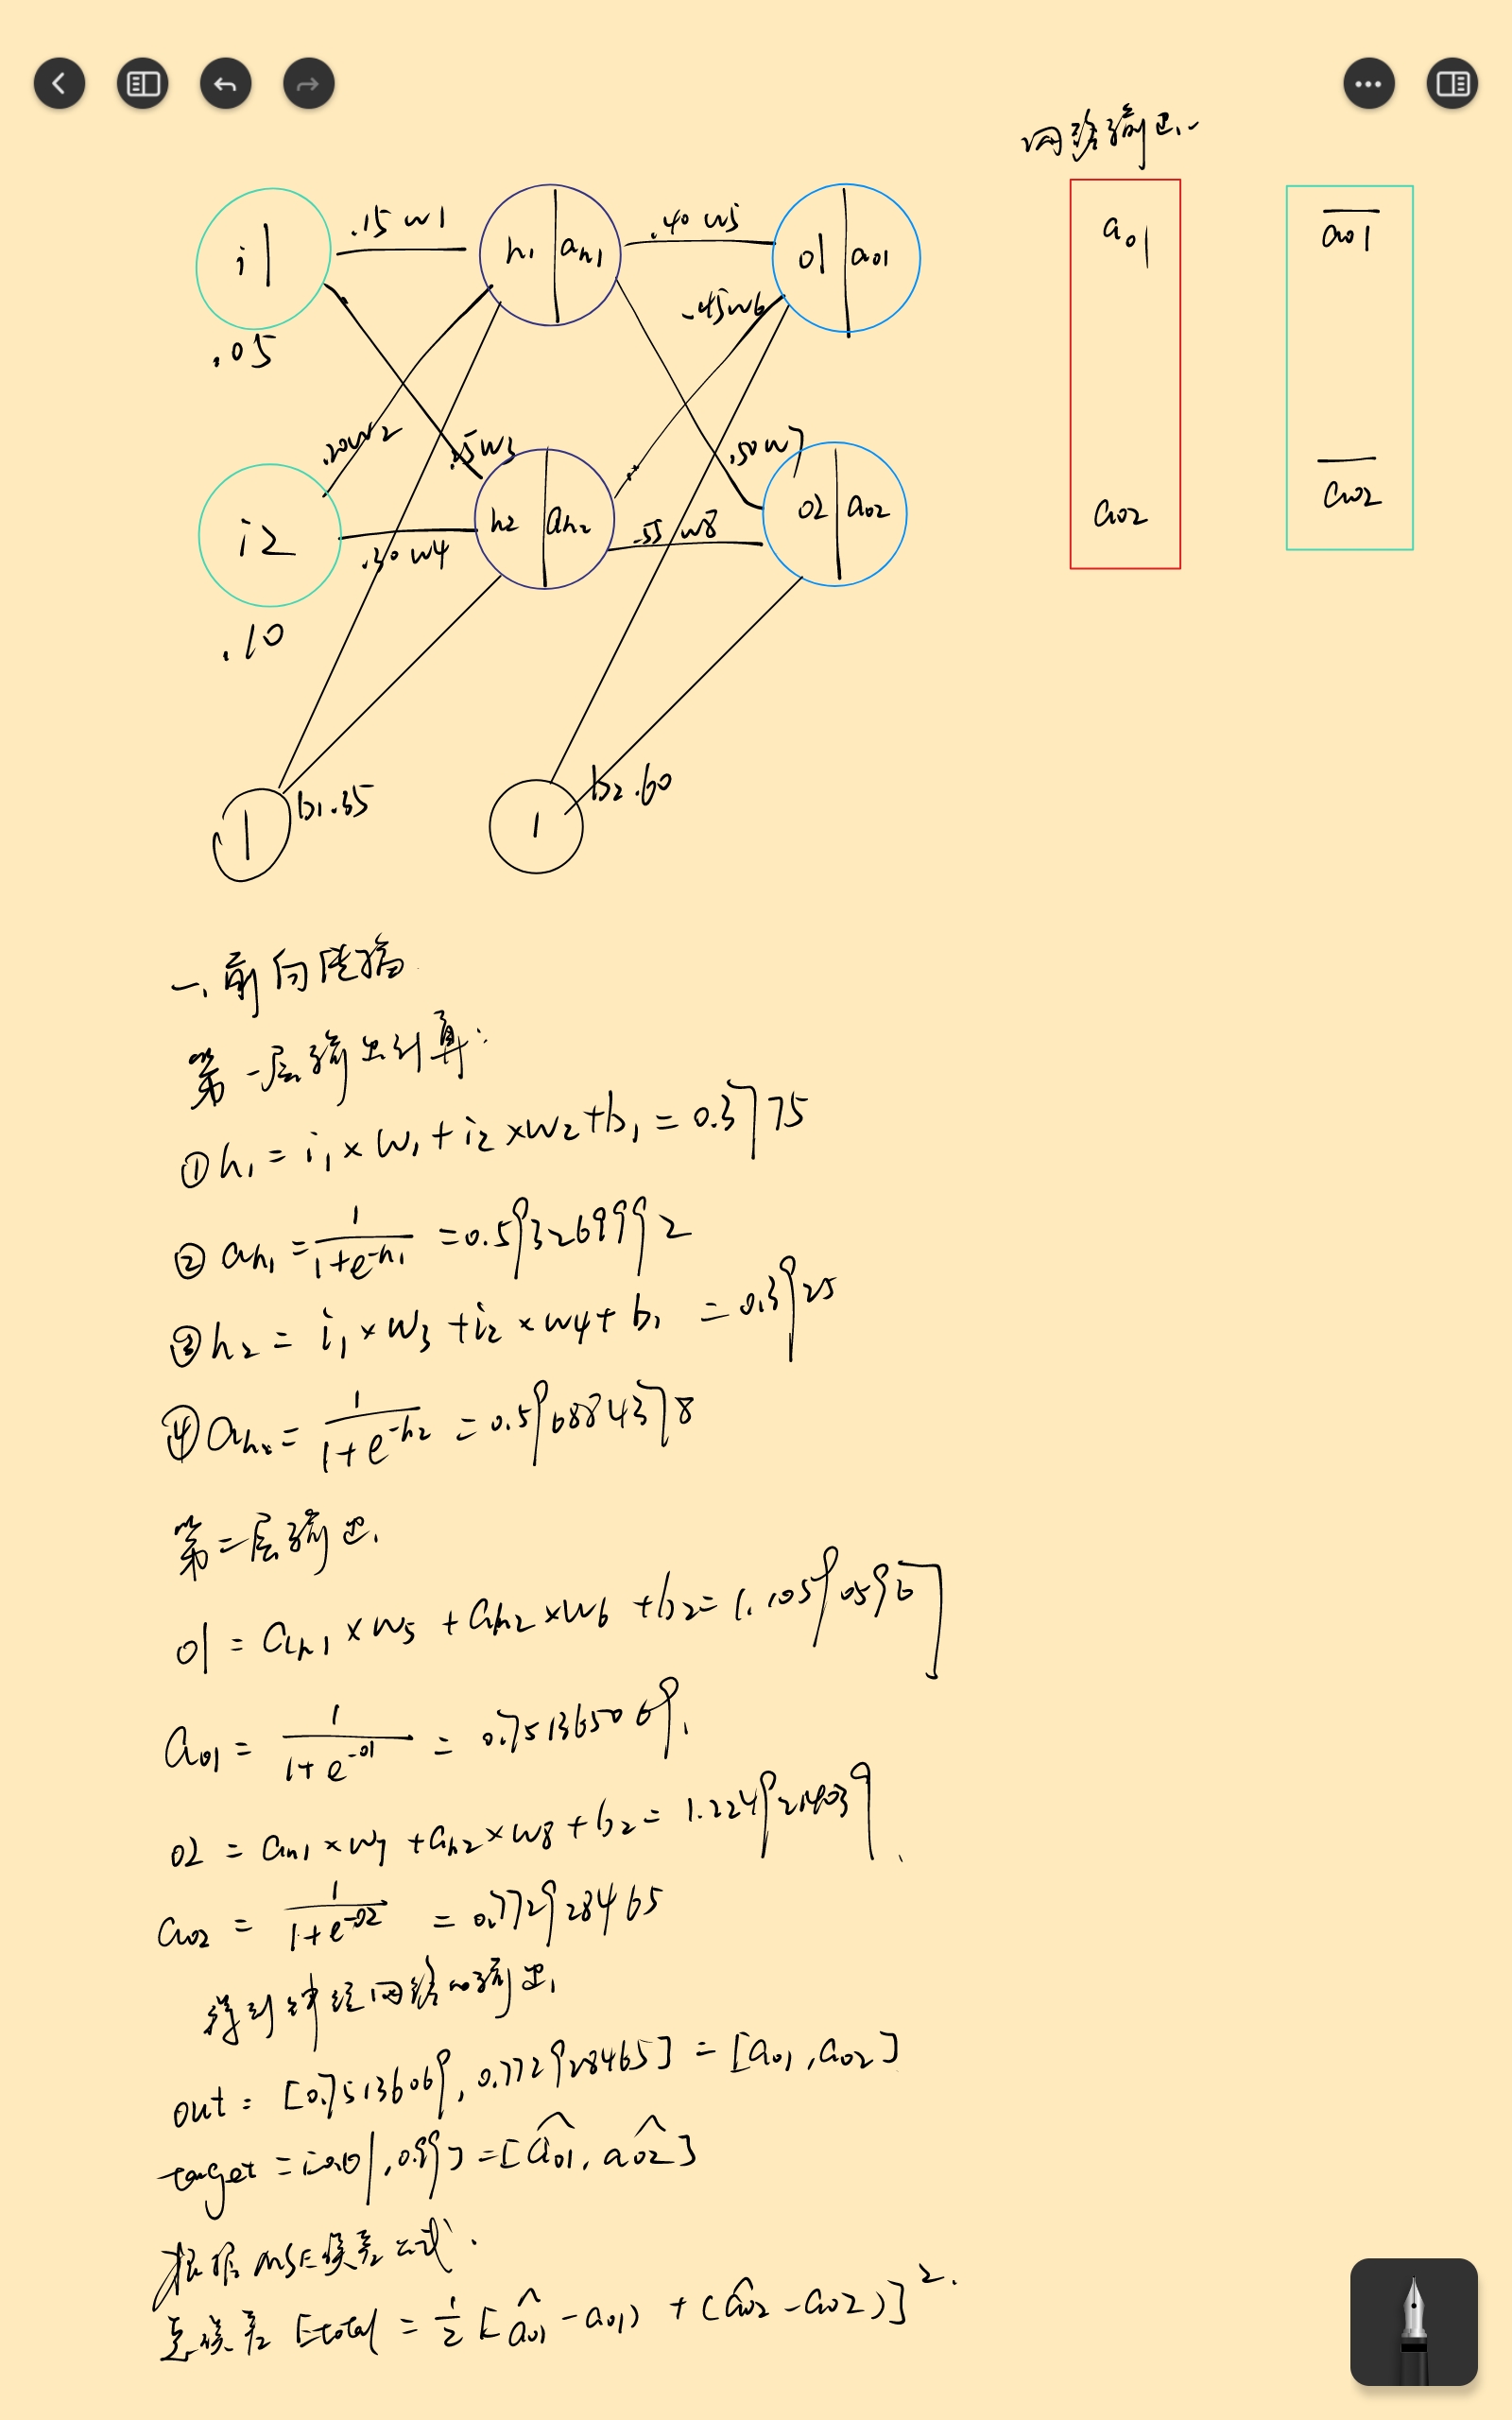 网络输出、
i1 .15 w1 h1 ah1 .40 w5 o1 ao1 ao1 ao1
.05 .45w6
.20w2 .25w3 .50w7
i2 .30 w4 h2 ah2 .55 w8 o2 ao2 ao2 ao2
.10
1 b1.35 1 b2.60
一、前向传播
第一层输出计算:
①h₁ = i₁×w₁+i₂×w₂+b₁ = 0.3775
② ah₁ = 1/(1+e^-h₁) = 0.593269992
③h₂ = i₁×w₃+i₂×w4+b₁ = 0.3925
④ah₂ = 1/(1+e^-h₂) = 0.596884378
第二层输出、
o1 = ah1×w5+ah2×w6+b2= 1.105905967
ao1 = 1/(1+e^-o1) = 0.751365069、
o2 = ah1×w7+ah2×w8+b2= 1.2249214039、
ao2 = 1/(1+e^-o2) = 0.772928465
得到神经网络的输出、
out = [0.75136069, 0.772928465] = [ao1, ao2]
target = [0.01, 0.99] = [âo1, âo2]
根据MSE误差公式.
总误差 Etotal = 1/2 [âo1 - ao1) + (âo2 - ao2)]².